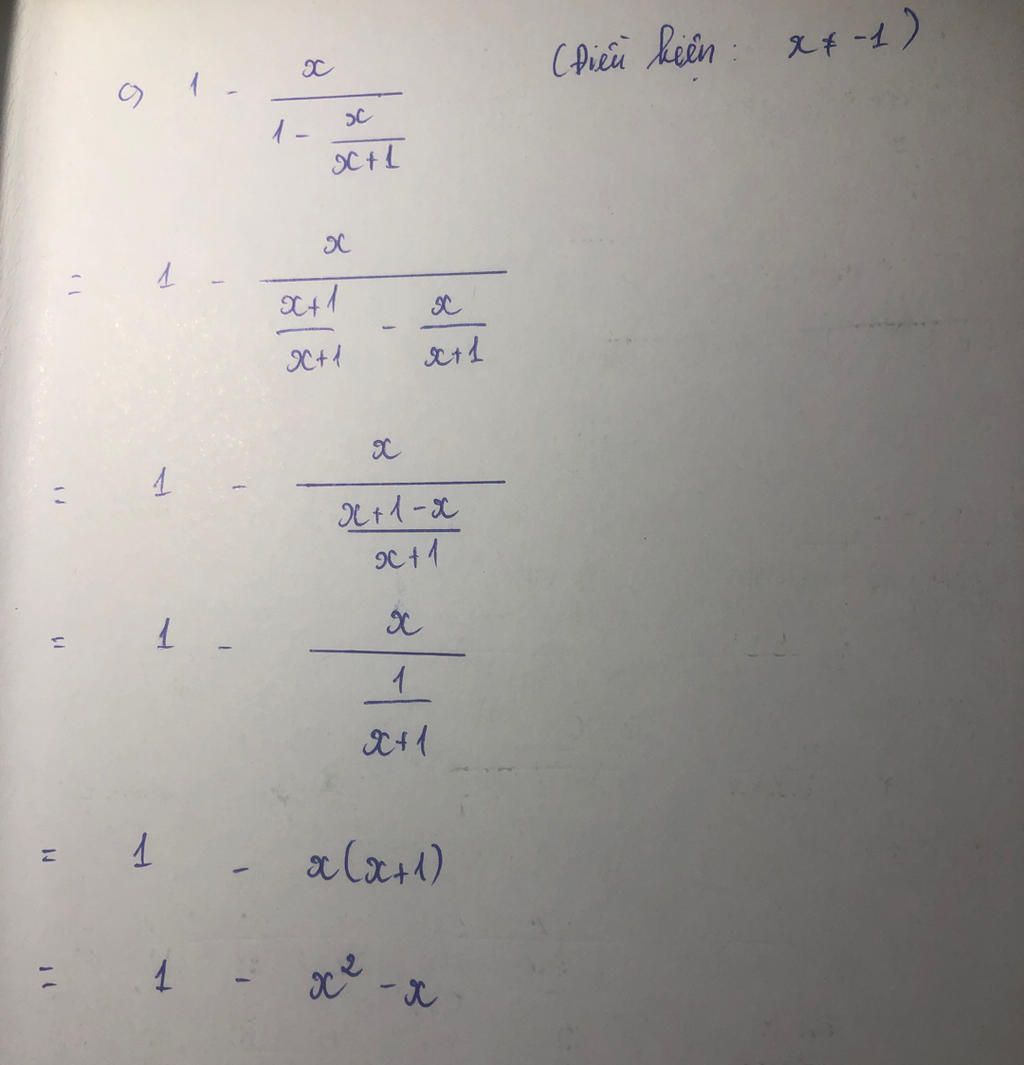 c) 1 - \frac{x}{1 - \frac{x}{x+1}} (Điều kiện : x ≠ -1)
= 1 - \frac{x}{\frac{x+1}{x+1} - \frac{x}{x+1}}
= 1 - \frac{x}{\frac{x+1-x}{x+1}}
= 1 - \frac{x}{\frac{1}{x+1}}
= 1 - x(x+1)
= 1 - x² - x